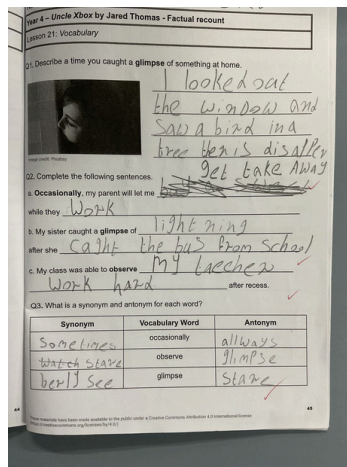 Year 4 – Uncle Xbox by Jared Thomas - Factual recount
Lesson 21: Vocabulary
Q1. Describe a time you caught a glimpse of something at home.
I looked out
the window and
saw a bird in a
tree
Image credit: Pixabay
get take away
Q2. Complete the following sentences.
a. Occasionally, my parent will let me
while they work
b. My sister caught a glimpse of lightning
after she caght the bus from school
c. My class was able to observe my
work hard after recess.
Q3. What is a synonym and antonym for each word?
Synonym Vocabulary Word Antonym
Sometimes occasionally allways
watch stare observe glimpse
see glimpse stare
44
45
These materials have been made available to the public under a Creative Commons Attribution 4.0 International license